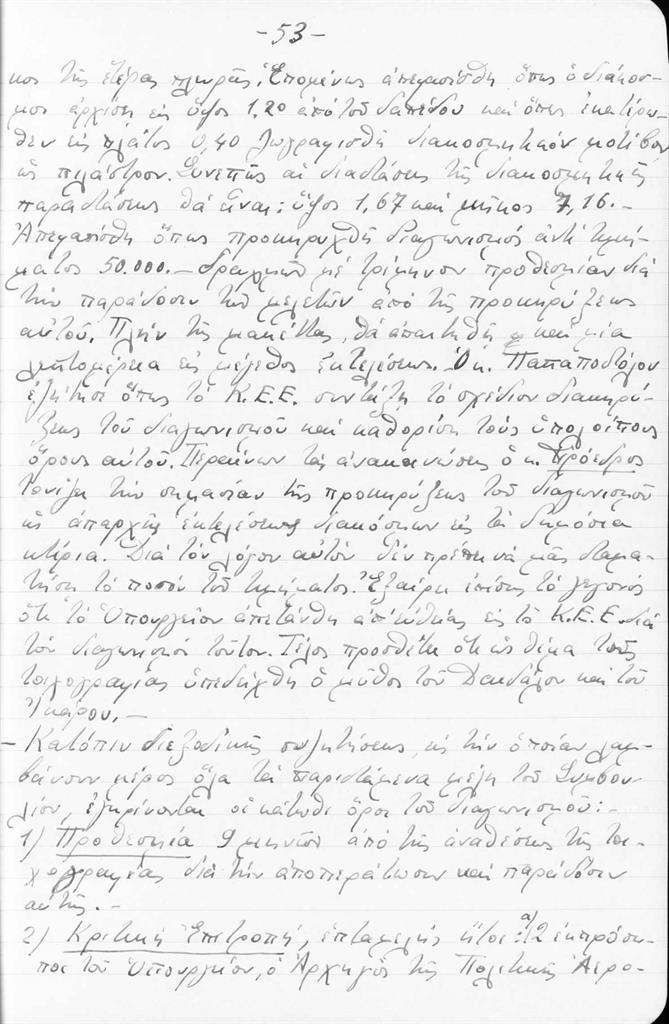 -53-
κος τῆς ἑτέρας πλευρᾶς. Ἑπομένως ἀπεφασίσθη ὅπως ὁ διάκοσ-
μος ἀρχίσῃ εἰς ὕψος 1,20 ἀπό τοῦ δαπέδου καί ὅπως ἑκατέρω-
θεν εἰς πλάτος 0,40 ζωγραφισθῇ διακοσμητικόν μοτίβον
ὡς πιλάστρον. Συνεπῶς αἱ διαστάσεις τῆς διακοσμητικῆς
παραστάσεως θά εἶναι: ὕψος 1,67 καί μῆκος 7,16.-
Ἀπεφασίσθη ὅπως προκηρυχθῇ διαγωνισμός ἀντί τιμή-
ματος 50.000.- δραχμῶν μέ τρίμηνον προθεσμίαν διά
τήν παράδοσιν τῶν μελετῶν ἀπό τῆς προκηρύξεως
αὐτοῦ. Πλήν τῆς μακέττας, θά ἀπαιτηθῇ καί μία
λεπτομέρεια εἰς μέγεθος ἐκτελέσεως. Ὁ κ. Παπαποστόλου
ἐζήτησε ὅπως τό Κ.Ε.Ε. συντάξῃ τό σχέδιον διακηρύ-
ξεως τοῦ διαγωνισμοῦ καί καθορίσῃ τούς ὑπολοίπους
ὅρους αὐτοῦ. Περαίνων τάς ἀνακοινώσεις ὁ κ. Πρόεδρος
τονίζει τήν σημασίαν τῆς προκηρύξεως τοῦ διαγωνισμοῦ
ὡς ἀπαρχῆς ἐκτελέσεως διακόσμων εἰς τά δημόσια
κτίρια. Διά τόν λόγον αὐτόν δέν πρέπει νά μᾶς σταμα-
τήσῃ τό ποσόν τοῦ τιμήματος. Ἐξαίρει ἐπίσης τό γεγονός
ὅτι τό Ὑπουργεῖον ἀπετάνθη ἀπ' εὐθείας εἰς τό Κ.Ε.Ε. διά
τόν διαγωνισμόν τοῦτον. Τέλος προσθέτει ὅτι ὡς θέμα τῆς
τοιχογραφίας ὑπεδείχθη ὁ μῦθος τοῦ Δαιδάλου καί τοῦ
Ἰκάρου.-
- Κατόπιν διεξοδικῆς συζητήσεως, εἰς τήν ὁποίαν λαμ-
βάνουν μέρος ὅλα τά παριστάμενα μέλη τοῦ Συμβου-
λίου, ἐγκρίνονται οἱ κάτωθι ὅροι τοῦ διαγωνισμοῦ:-
1) Προθεσμία 9 μηνῶν ἀπό τῆς ἀναθέσεως τῆς τοι-
χογραφίας διά τήν ἀποπεράτωσιν καί παράδοσιν
αὐτῆς.-
2) Κριτική Ἐπιτροπή, ἑπταμελής ἤτοι: α) 2 ἐκπρόσω-
ποι τοῦ Ὑπουργείου, ὁ Ἀρχηγός τῆς Πολιτικῆς Ἀερο-